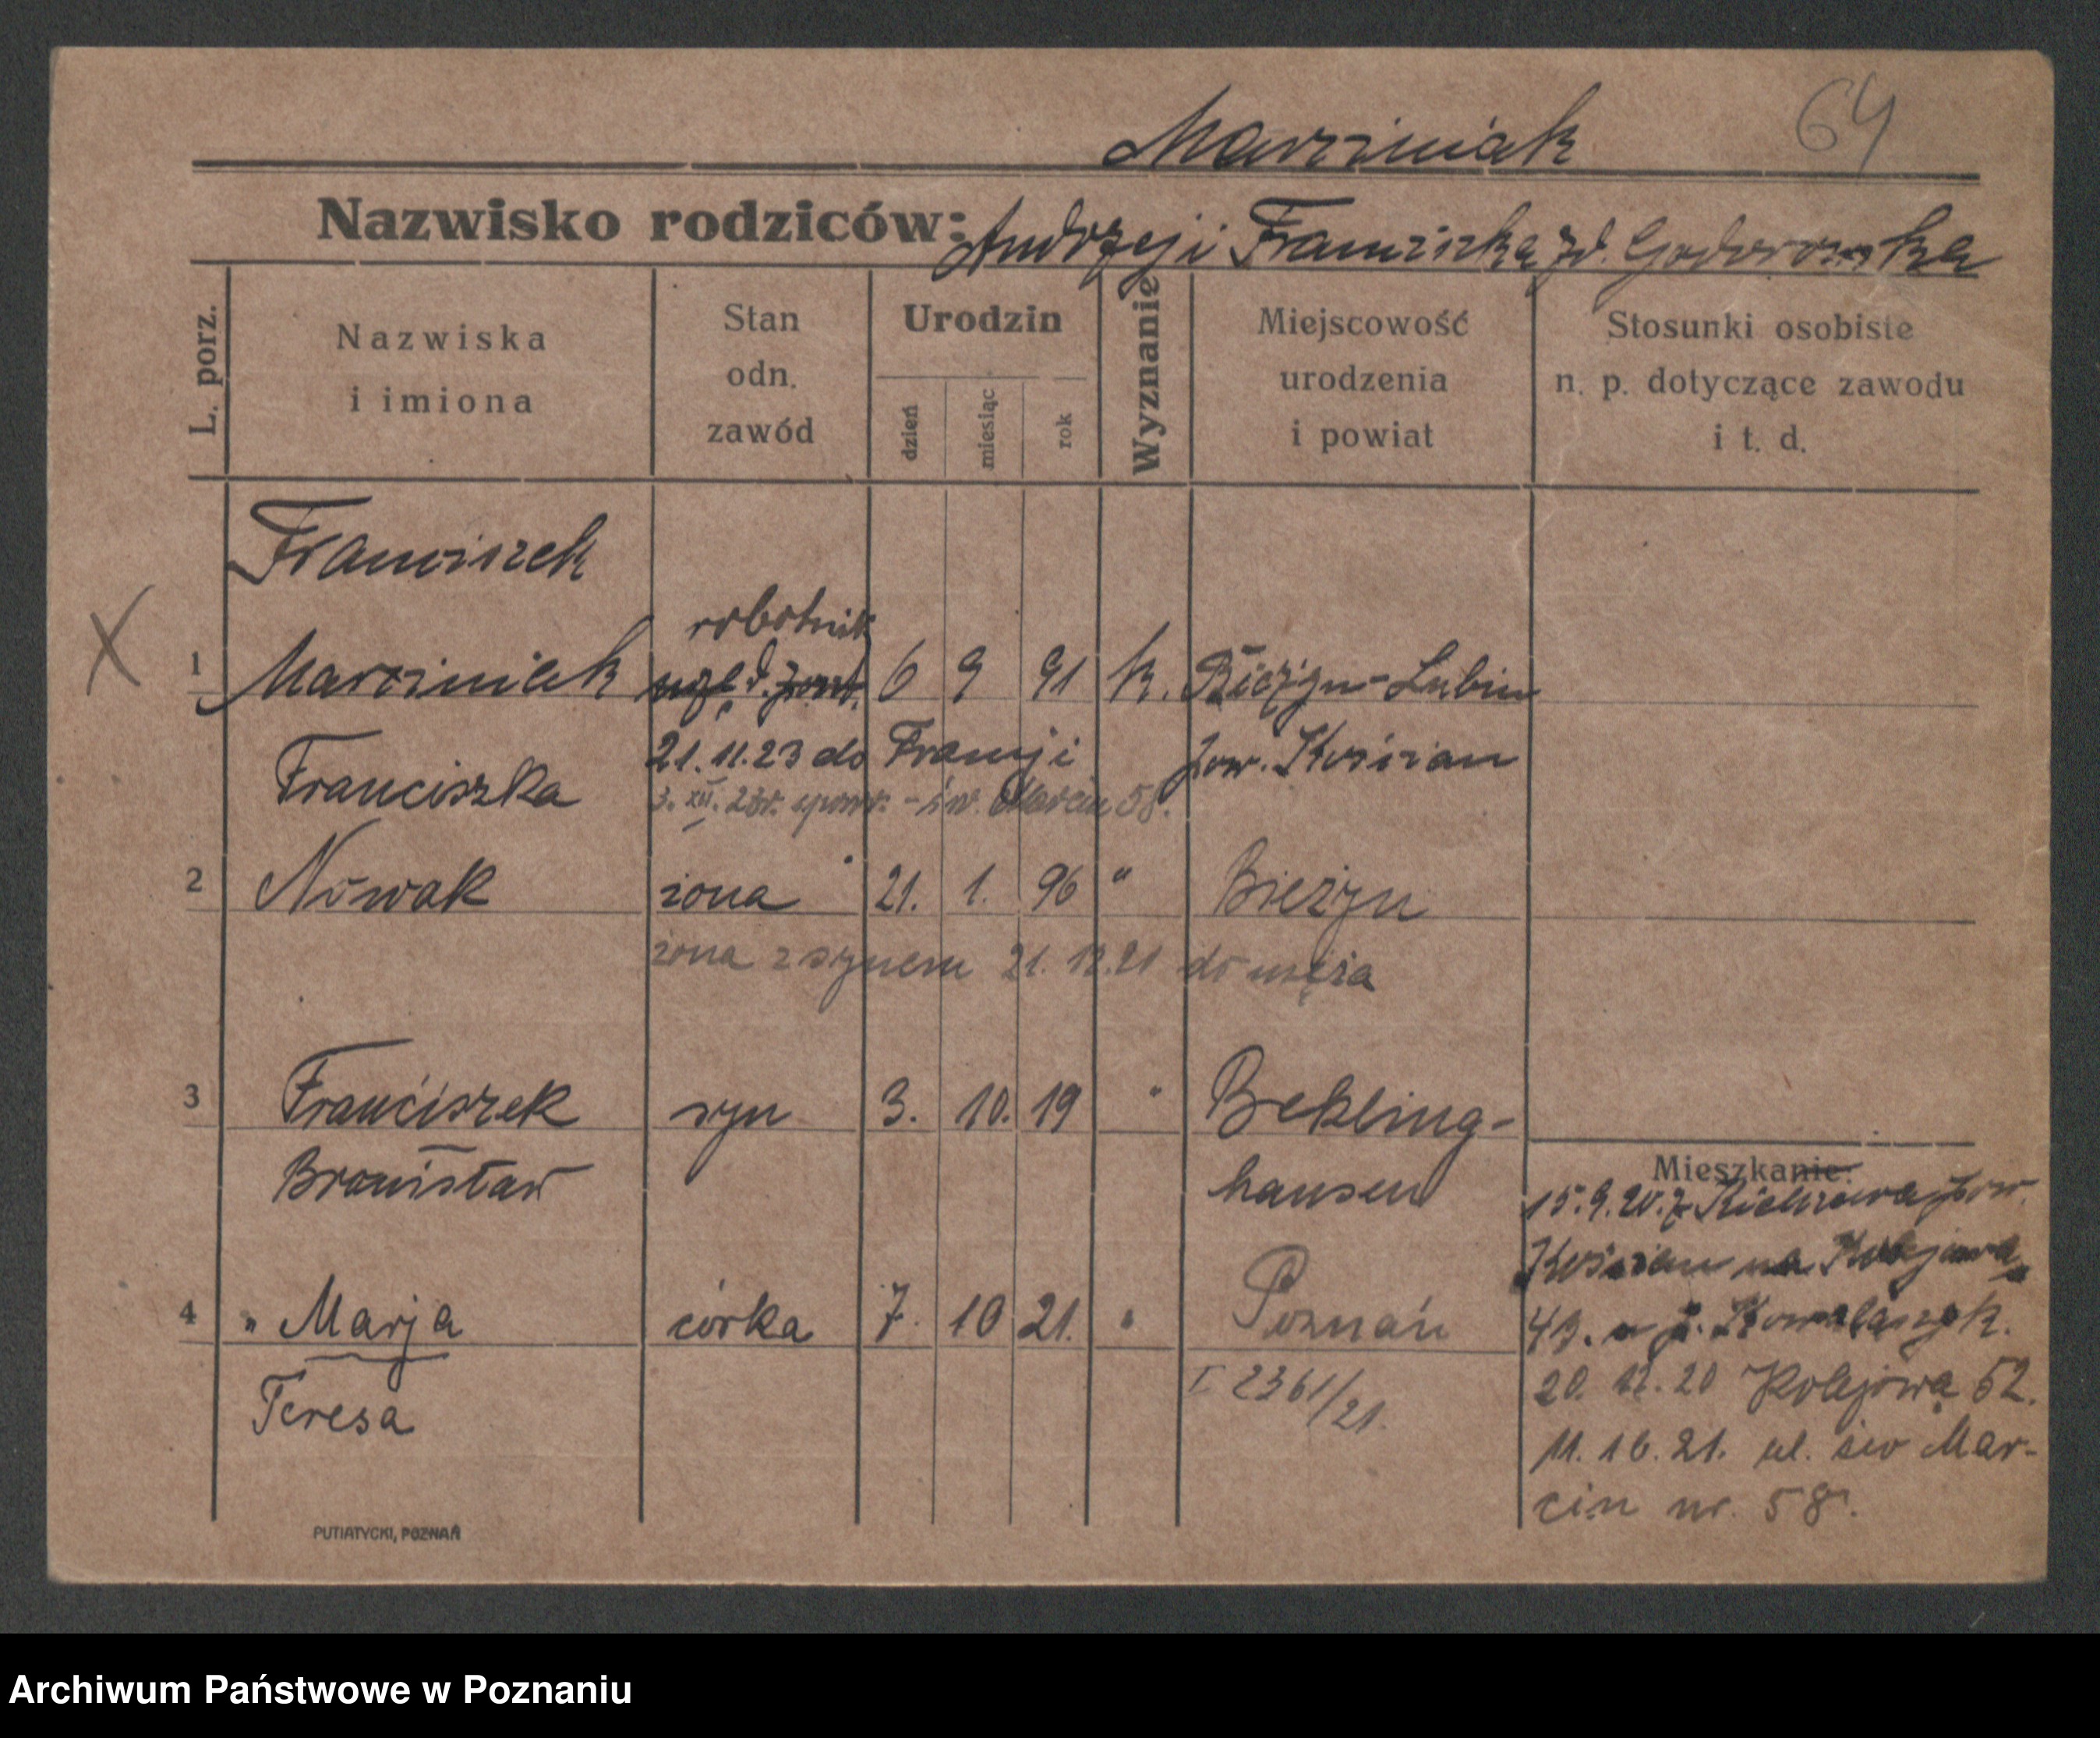 64
Marciniak
Nazwisko rodziców: Andrzej i Franciszka zd.
L. porz.
Nazwiska i imiona
Stan odn. zawód
Urodzin
dzień
miesiąc
rok
Wyznanie
Miejscowość urodzenia i powiat
Stosunki osobiste n. p. dotyczące zawodu i t. d.
Franciszek
robotnik
X 1 Marciniak 6 9 91 k. Bieżyn-Lubin
21.11.23 do Francji pow. Kościan
Franciszka
3. XII. 23r. - św. Marcin 58.
2 Nowak żona 21. 1. 96 " Bieżyn
żona z synem 21. 12. 21 do męża
3 Franciszek syn 3. 10. 19 " Rekling-
Bronisław hausen
Mieszkanie:
15.9.20. z pow.
Kościan na Kolejowa
4 " Marja córka 7. 10 21. " Poznań
43.
I 2361/21.
20. 12. 20 Kolejowa 52.
Teresa
11. 16. 21. ul. św Mar-
cin nr. 58.
PUTIATYCKI, POZNAŃ
Archiwum Państwowe w Poznaniu